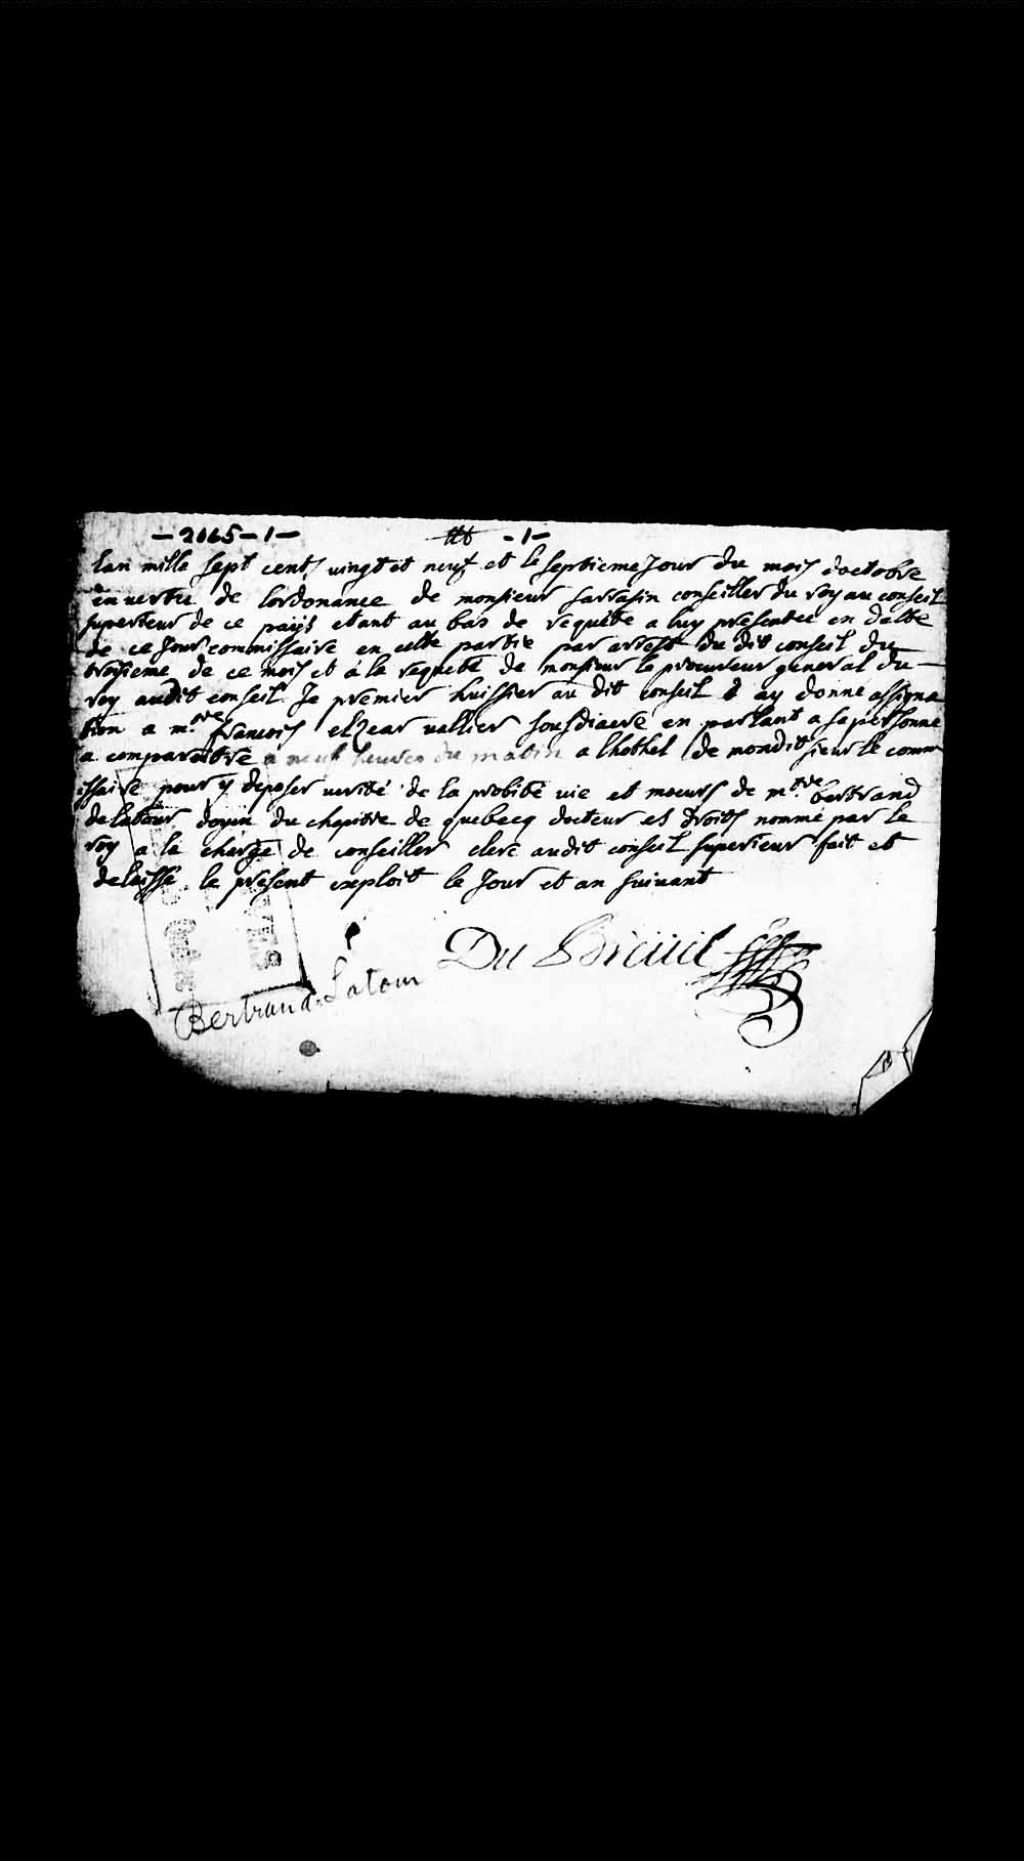 - 2065 - 1 - - 1 -
lan mille sept cents vingt et neuf et le septieme Jour du mois doctobre
en vertu de lordonance de monsieur sarrasin conseiller du roy au conseil
superieur de ce païis etant au bas de requete a luy presentee en datte
de ce Jour commissaire en cette partie par arrest du dit conseil du
troisieme de ce mois et a la requete de monsieur le procureur general du
roy audit conseil Je premier huissier au dit conseil ay donné assigna
tion a m.tre francois elzear vallier sousdiacre en parlant a sa personne
a comparoitre a neuf heures du matin a lhothel de mondit sieur le comm
issaire pour y deposer verité de la probité vie et moeurs de m.tre bertrand
delatour doyen du chapitre de quebecq docteur es droits nommé par le
roy a la charge de conseiller clerc audit conseil superieur fait et
delaissé le present exploit le Jour et an suivant
Du Breüil
Bertrand-Latour